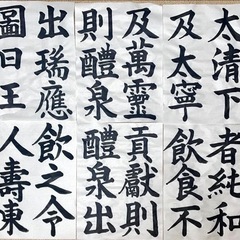 太清下
及太寧
及萬靈
則醴泉
出瑞應
圖曰王
者純和
飲食不
貢獻則
醴泉出
飲之令
人壽東